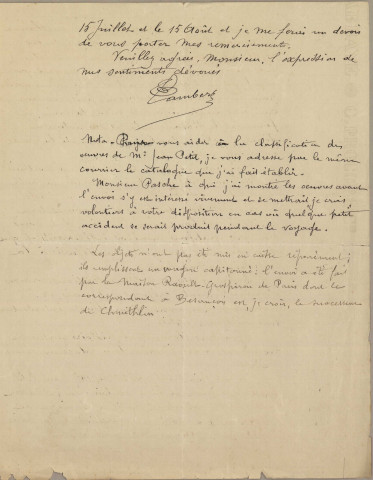 15 Juillet et le 15 Août et je me ferais un devoir
de vous porter mes remerciements.
Veuillez agréer, Monsieur, l'expression de
mes sentiments dévoués
Nota - Pour vous aider à la classification des
œuvres de Mr Jean Petit, je vous adresse par le même
courrier le catalogue que j'ai fait établir.
Monsieur Pasche à qui j'ai montré les œuvres avant
l'envoi s'y est intéressé vivement et se mettrait je crois
volontiers à votre disposition en cas où quelque petit
accident se serait produit pendant le voyage.
Les objets n'ont pas été mis en caisse séparément ;
ils remplissent un wagon capitonné ; l'envoi a été fait
par la Maison de Paris dont le
correspondant à Besançon est, je crois, le successeur
de